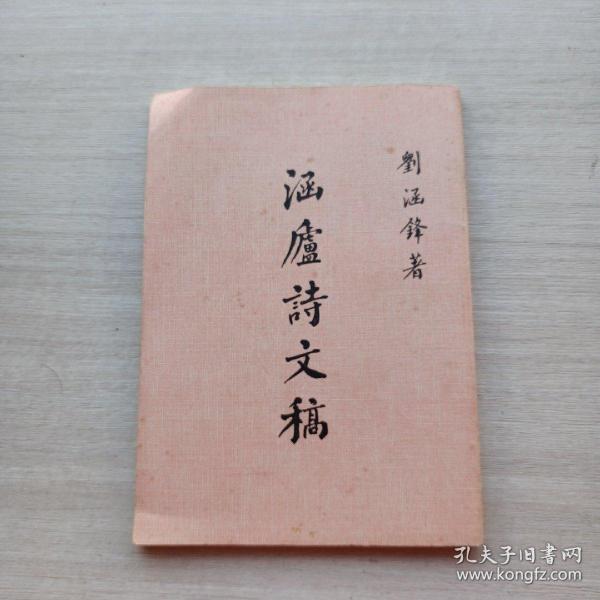 劉涵鋒著
涵廬詩文稿
孔夫子旧書网
www.kongfz.com